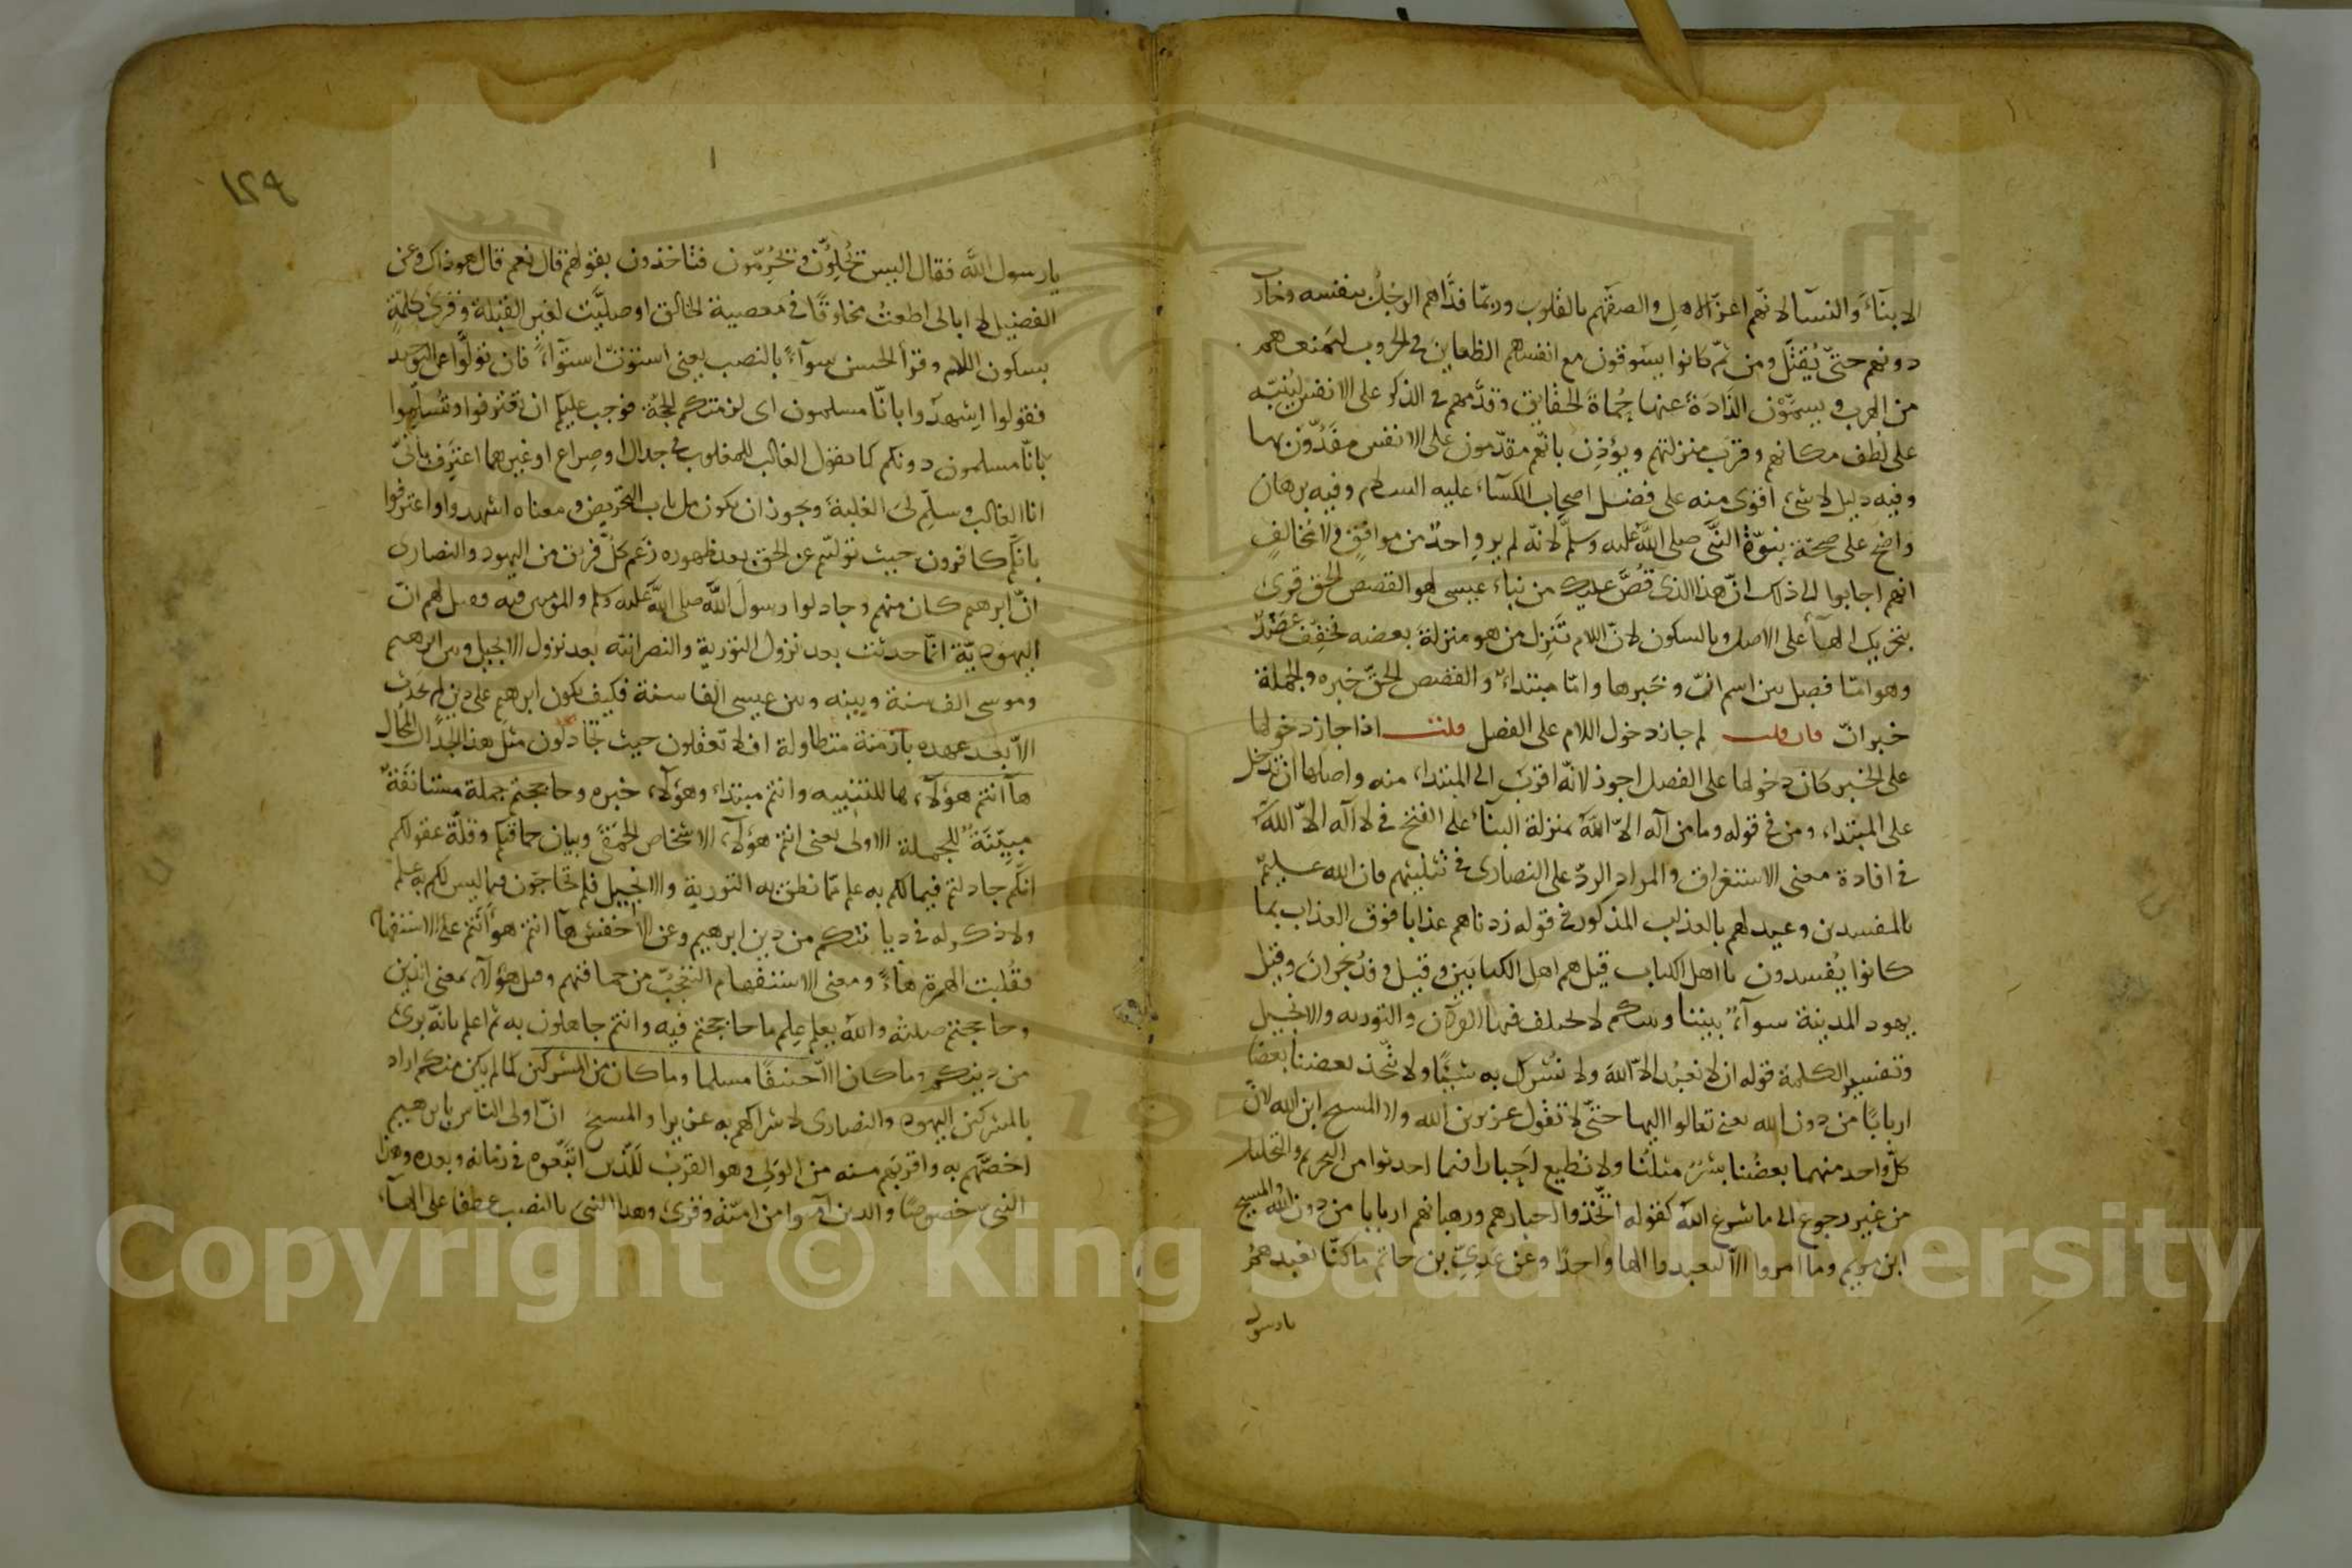 الابناء والنسآ لانّهم اعزّ الاهل والصقهم بالقلوب وربمّا فدّاهم الرجل بنفسه وحارب
دونهم حتىّ يُقتل ومن ثمّ كانوا يسوقون مع انفسهم الظعاين في الحروب لتمنعهم
من الهرب ويسمّوْن الذادَة عنها حُماة الحقايق وقدّمهم في الذكر على الانفس ليُنبّه
على لُطف مكانهم وقرب منزلتهم ويؤذِن بانّهم مقدّمون على الانفس مفَدّون بها
وفيه دليل لا شيء اقوى منه على فضل اصحاب الكسآء عليه السلام وفيه برهان
واضح على صحّة نبوّة النّبي صلى الله عليه وسلّم لانّه لم يروِ احدٌ من موافقٍ ولا مخالفٍ
انهم اجابوا الى ذلك انّ هذا الذي قُصّ عليك من نباء عيسى لهو القصص الحق قرئ
بتحريك الهآ على الاصل وبالسكون لانّ اللام تَنزِل من هو منزلةَ بعضه فخفّف عَضْدٌ
وهو امّا فصل بين اسم انّ وخبرها وامّا مبتداءٌ والقصص الحقّ خبره والجملة
خبر انّ فان قلت لم جاز دخول اللام على الفصل قلت اذا جاز دخولها
على الخبر كان دخولها على الفصل اجوز لانّه اقرب الى المبتداء منه واصلها ان تدخل
على المبتداء ومن في قوله وما من آله الاّ الله بمنزلة البنآء على الفتح في لا آله الاّ الله
في افادة معنى الاستغراق والمراد الردّ على النصارى في تثليثهم فان الله عليمٌ
بالمفسدين وعيد لهم بالعذاب المذكور في قوله زدناهم عذابا فوق العذاب بما
كانوا يُفسدون يا اهل الكتاب قيل هم اهل الكتابَين وقيل وفدُ نجران وقيل
يهود المدينة سوآءٌ بيننا وبينكم لا يختلف فيها القرآن والتورية والانجيل
وتفسير الكلمة قوله ان لا نعبُد الاّ الله ولا نشرك به شيئًا ولا يتّخذ بعضنا بعضا
اربابًا من دون الله يعني تعالوا اليها حتىّ لا نقول عزير بن الله ولا المسيح ابن الله لانّ
كلّ واحد منهما بعضُنا بشرٌ مثلنا ولا نطيع احبارنا فيما احدثوا من التحريم والتحليل
من غير رجوع الى ما شرع الله كقوله اتّخذوا احبارهم ورهبانهم اربابا من دون الله والمسيح
ابن مريم وما امروا الاّ ليعبدوا الها واحدًا وعن عَدِيّ بن حاتم ما كنّا نعبدهم
يا رسول
١٢٩
يا رسول الله فقال اليس يُحِلّون ويُحَرّمون فتاخذون بقولهم قال نعم قال هو ذاك وعن
الفضيل لا ابالى اطعتُ مخلوقًا في معصية الخالق او صلّيت لغير القبلة وقرئ كلْمةٍ
بسكون اللام وقرأ الحسن سوآءً بالنصب يعني استوتْ استوآءً فان تولّوا عن التوحيد
فقولوا اشهدوا بانّا مسلمون اى لزمتكم الحُجّة فوجب عليكم ان تعترفوا وتُسلّموا
بانّا مسلمون دونكم كما يقول الغالب للمغلوب في جدال او صِراع او غيرهما اعترف بانّي
انا الغالب وسلّم لىَ الغلبة ويجوز ان يكون من باب التعريض ومعناه اشهدوا واعترفوا
بانّكم كافرون حيث تولّيتم عن الحق بعد ظهوره زعم كلّ فريق من اليهود والنصارى
انّ ابرهيم كان منهم وجادلوا رسول الله صلى الله عليه وسلم والمؤمنين فيه فقيل لهم انّ
اليهوديّة انّما حدثت بعد نزول التورية والنصرانيّة بعد نزول الانجيل وبين ابرهيم
وموسى الف سنة وبينه وبين عيسى الفا سنة فكيف يكون ابرهيم على دين لم يحدث
الاّ بعد عهده بازمنة متطاولة افلا تعقلون حيث تجادلون مثل هذا الجدال المحال
هآ انتم هؤلآء ها للتنبيه وانتم مبتداء وهؤلآء خبره وحاججتم جملة مستانفةٌ
مبيّنَةٌ للجملة الاولى يعني انتم هؤلآء الاشخاص الحمقى وبيان حماقتكم وقلّة عقولكم
انّكم جادلتم فيما لكم به علم ممّا نطق به التورية والانجيل فلم تحاجّون فيما ليس لكم به علم
ولا ذكر له في ديانتكم من دين ابرهيم وعن الاخفش هآ انتم هو أأنتم على الاستفهام
فقُلبت الهمزة هاءً ومعنى الاستفهام التعجّب من حماقتهم وقيل هؤلآء بمعنى الذين
وحاججتم صلته والله يعلم علِم ما حاججتم فيه وانتم جاهلون به ثم اعلم بانّه برئ
من دينكم وما كان الاّ حنيفًا مسلما وما كان من المشركين كما لم يكن منكم اراد
بالمشركين اليهود والنصارى لاشراكهم به عزيرا والمسيحَ انّ اولى الناس بابرهيم
اخصّهم به واقربهم منه من الولى وهو القرب للّذين اتّبعوه في زمانه وبعده وهذا
النبيّ خصوصًا والذين آمنوا من امّته وقرئ وهذا النبى بالنصب عطفا على الهآء
Copyright © King Saud University
1957